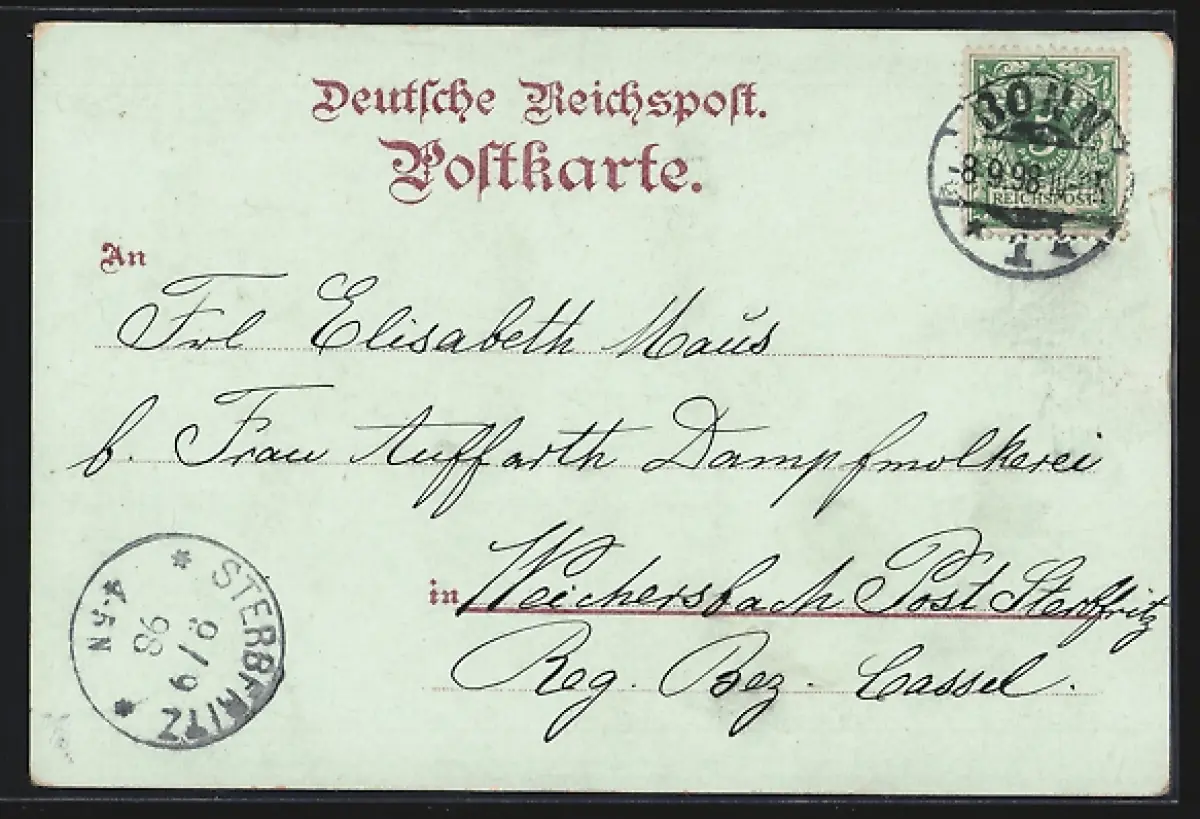 Deutsche Reichspost.
Postkarte.
BONN
8.9.98
REICHSPOST
1
An
Frl Elisabeth Maus
b. Frau Auffarth Dampfmolkerei
in Weichersbach Post Sterbfritz
Reg. Bez. Cassel.
STERBFRITZ
9/9
98
4-5N